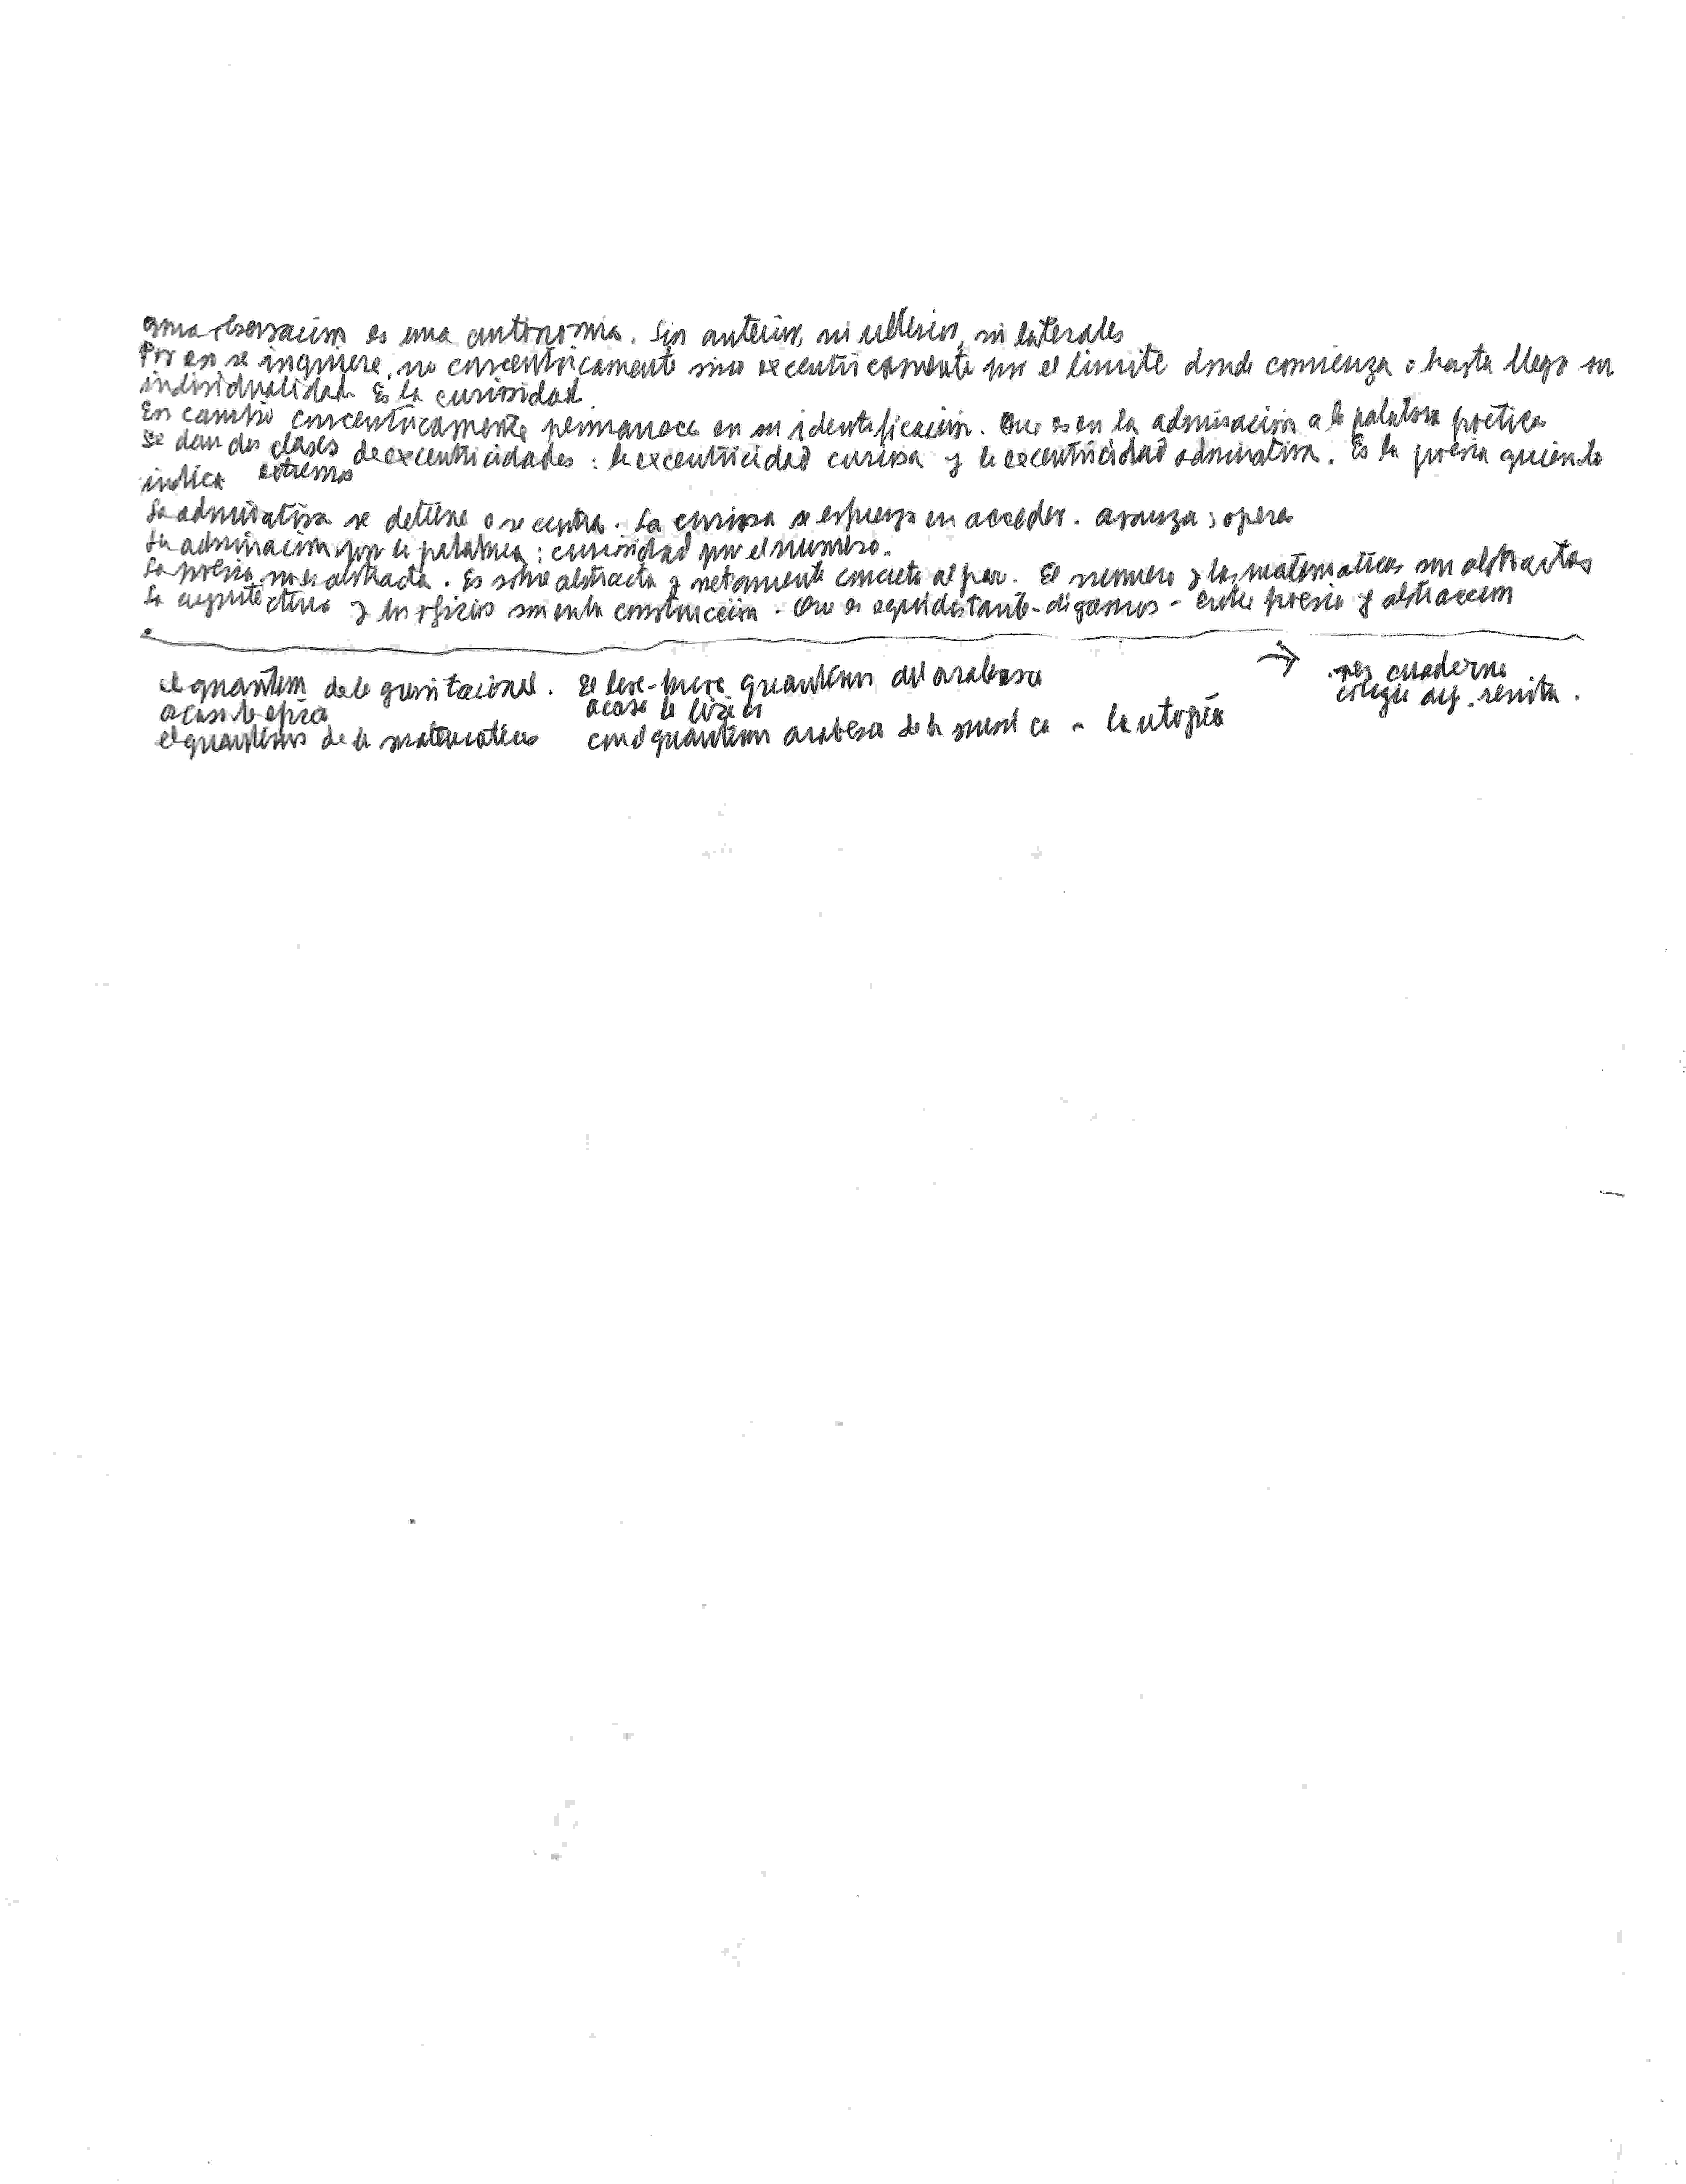 una observación es una autonomía. Sin anterior, ni ulterior, ni laterales
Por eso se inquiere, no concentricamente sino excentricamente por el límite donde comienza o hasta llega su
individualidad. Es la curiosidad.
En cambio concentricamente permanece en su identificación. Que es en la admiración a la palabra poética
Se dan dos clases de excentricidades : la excentricidad curiosa y la excentricidad admirativa. Es la poesía quien lo
indica extremos
La admirativa se detiene o se centra. La curiosa se esfuerza en acceder. avanza ; opera
La admiración por la palabra ; curiosidad por el número.
La poesía no es abstracta. Es sobre abstracta y netamente concreta al par. El número y las matemáticas son abstractas
La arquitectura y los oficios son en la construcción. Que es equidistante - digamos - entre poesía y abstracción
el quantum de lo gravitacional. El leve-breve quantum del arabesco
acaso la épica acaso la lírica
el quantum de la matemáticas con el quantum arabesco de la música - la utopía
→ cuaderno
colegio arq. revista.